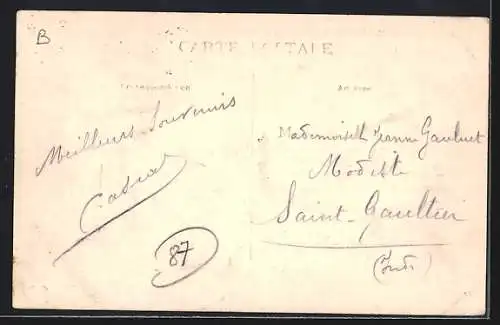 B
CARTE POSTALE
Correspondance
Adresse
Meilleurs Souvenirs
Mademoiselle Jeanne
Modiste
Saint-Gaultier
(Indre)
87